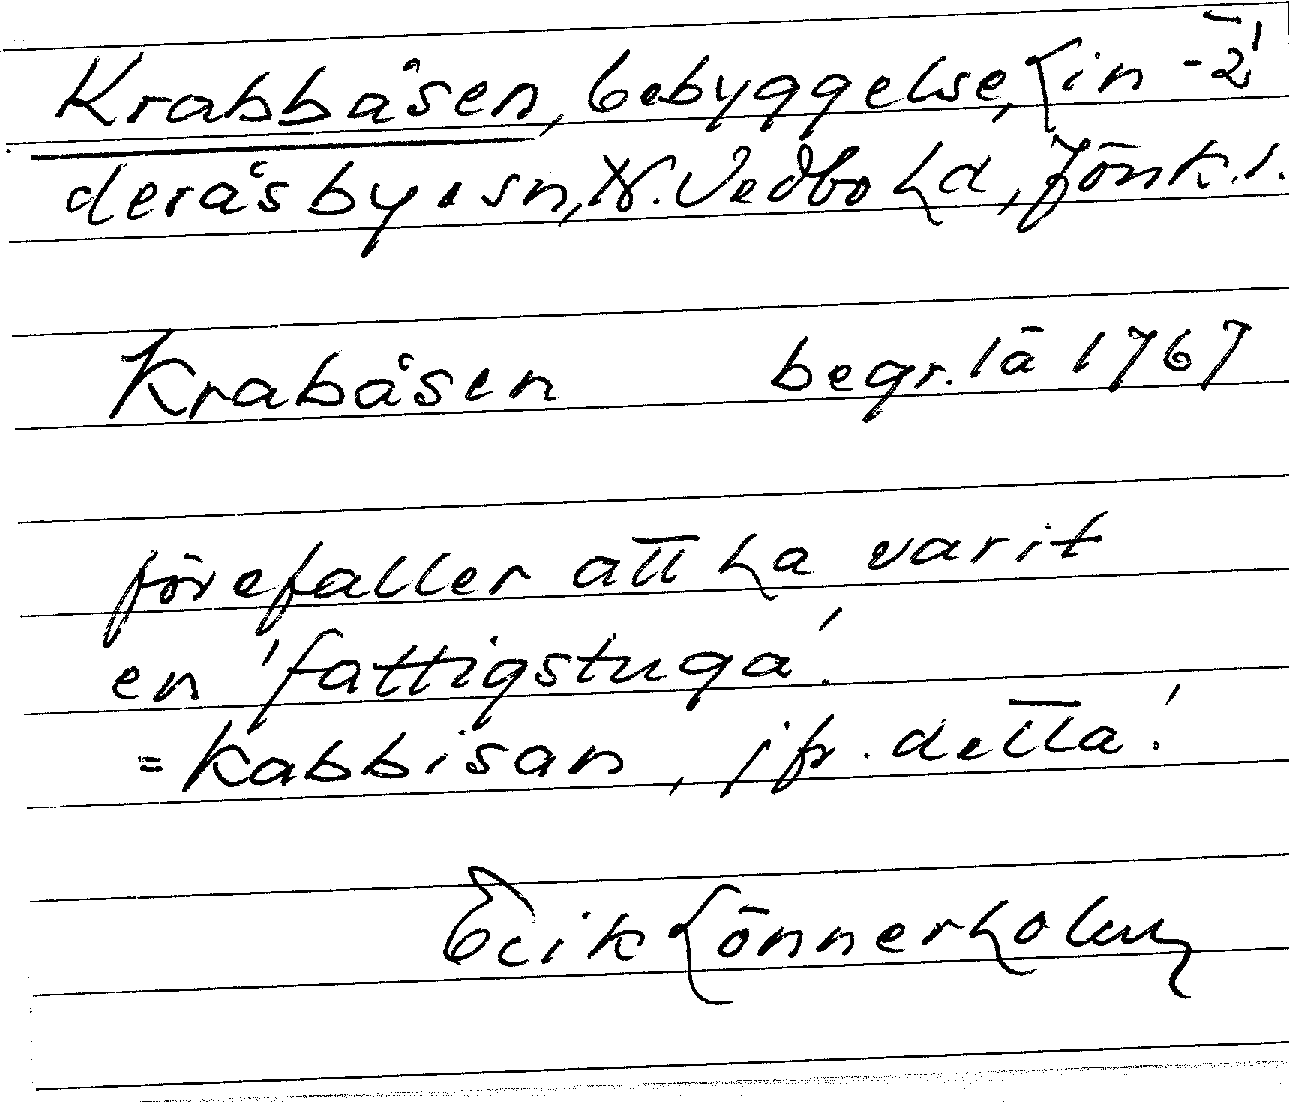 Krabbåsen, bebyggelse, Lin-
deråsby i sn, N. Vedbo hd, Jönk. l.
Krabåsen begr. lä 1767
förefaller att ha varit
en 'fattigstuga'.
= Kabbisan, jfr. detta!
Erik Lönnerholm